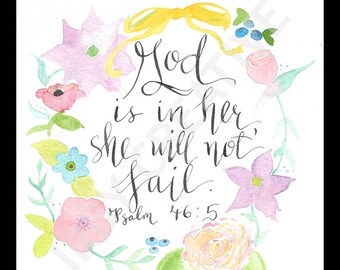 God
is in her
she will not
fail.
Psalm 46:5